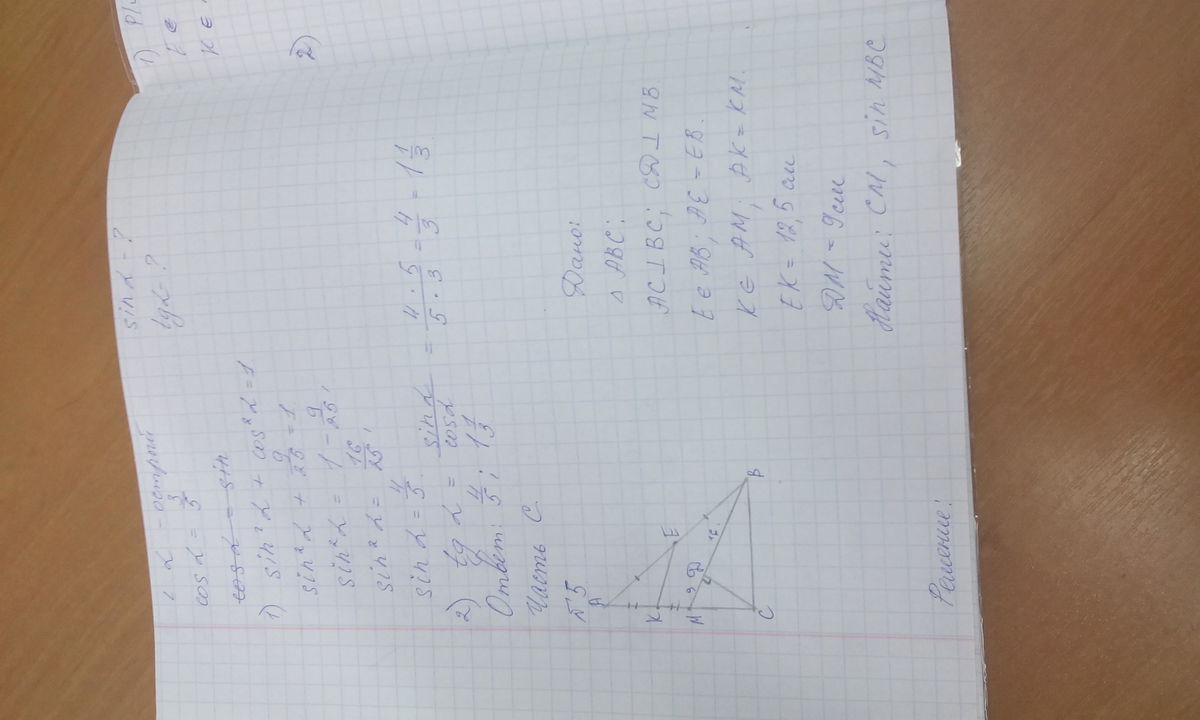 ∠ α - острый sin α - ?
cos α = 3/5 tg α - ?
cos α = sin
1) sin²α + cos²α = 1
sin²α + 9/25 = 1
sin²α = 1 - 9/25,
sin²α = 16/25,
sin α = 4/5.
2) tg α = sin α/cos α = 4·5/5·3 = 4/3 = 1 1/3.
Ответ: 4/5; 1 1/3
Часть C.
№5
A
K
E
M
9
D
16
C
B
Дано:
△ ABC:
AC ⊥ BC; CD ⊥ MB
E ∈ AB; AE = EB.
K ∈ AM; AK = KM.
EK = 12,5 см
DM = 9 см
Найти: CM, sin MBC
Решение:
1)
K ∈
2)